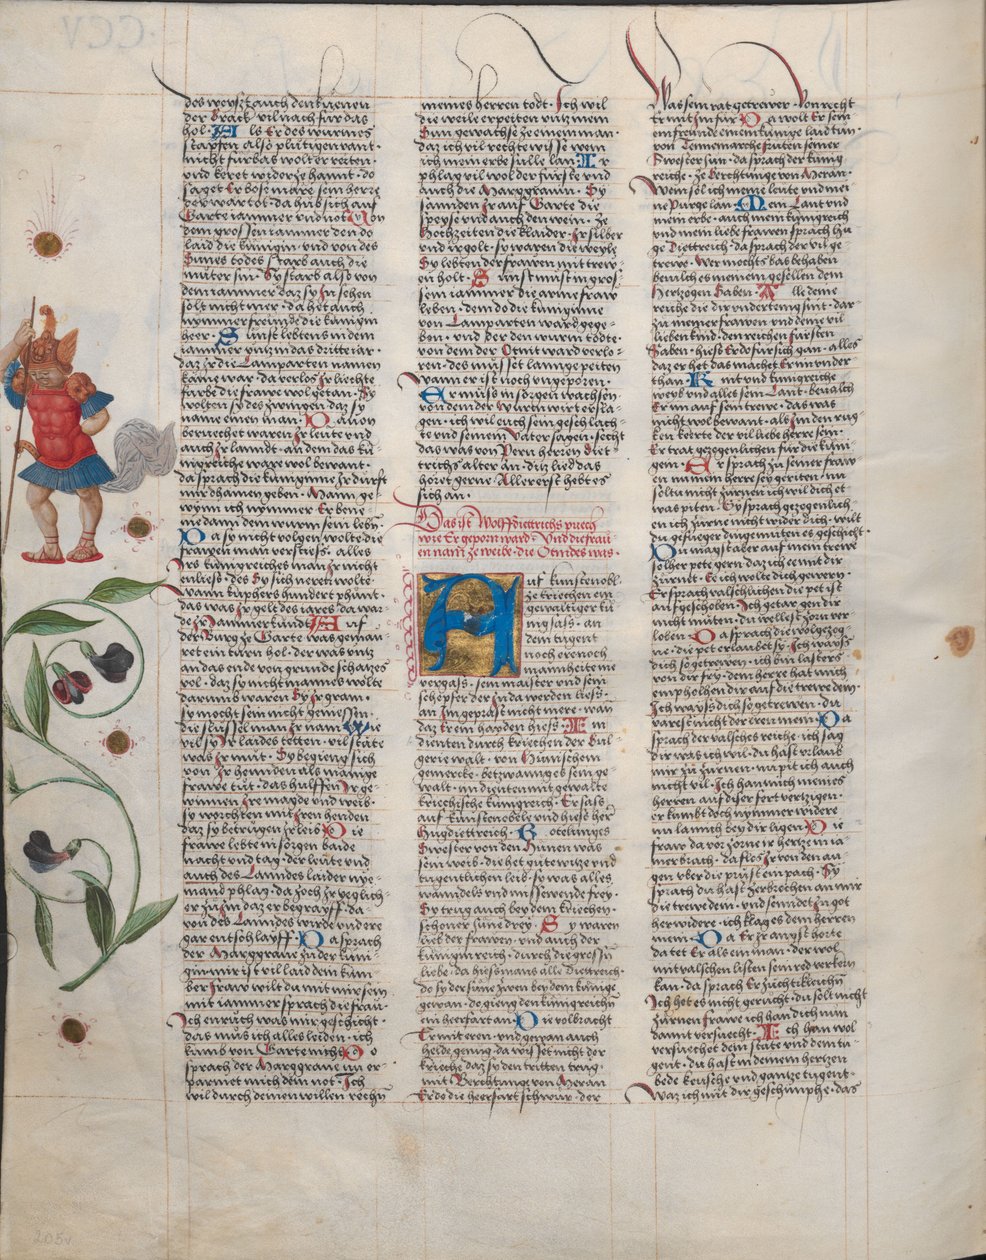 des weyszt auch den kúenen
der Brack vil nach für das
hol · Als Er des wurmes
stapfen also plútigen vant ·
nicht fúrbas wolt er reiten ·
vnd keret wider ze hant · do
saget Er böse märe · sein herre
der wär tot · da hůb sich auf
Garte iammer vnd not · Von
dem grossen iammer den do
laid die kúnigin · vnd von des
Sunes todes starb auch die
můter sin · Sy starb also von
dem iammer daz sy In sehen
solt nicht mer · da het auch
nymmer freunde die kúnigin
heer · Sunst lebt es in dem
iammer vntz in das dritte iar ·
daz ir die Lamparten namen
käme war · da verlos Ir liechte
farbe die frawe wol getan · Sy
wolten sy des zwingen daz sy
näme einen man · Dauon
berüchet waren Ir leute vnd
auch Ir lanndt · an dem das kú-
nigreiche ware wol bewant ·
da sprach die kúniginne Ir dürfft
mir dhainen geben · Mann ge-
wynn ich nymmer Er bene-
me dann dem wurm sein leben
Da sy nicht volgen wolte die
frawen man verstiess · alles
Irs kunigreiches man Ir nicht
enliess · des Sy sich neren wolte
wann kuphers hundert phunt ·
das was Ir gelt des iares · da wa-
de Ir iammer kunt · Auf
der Burg ze Garte was geman-
ret ein turn hol · der was vntz
an das ende von grunde schatzes
vol · daz sy nicht mannes wolte
darumb waren Sy Ir gram ·
sy mocht sein nicht geniessen
die slüssel man Ir nam · Wie
vil sy Ir laides tetten · vil state
was Ir můt · Sy begieng sich
von Ir hennden als manige
frawe tůt · das hulffen Ir ge-
winnen Ire magde vnd weib ·
sy worchten mit Iren henden
daz sy betrugen Ir leib · Die
frawe lebte in sorgen baide
nacht vnd tag · der leute vnd
auch des Lanndes laider nye-
mand phlag · da zoch Ir yeglich-
er zů Im daz er begrayff · da-
von des Lanndes wirde vndere
gar entschlayff · Da sprach
der Marggraue zů der kúni-
gin · mir ist vil laid dem kúm-
ber frawe wilt du mit mir sein
mit iammer sprach die fraw ·
Ich enrůch was mir geschicht ·
das můs ich alles leiden · ich
kumb von Garte nicht · Do
sprach der Marggraue nu er-
parmet mich dein not · Ich
wil durch deinen willen rechen
meines herren todt · Ich wil
die weile erpeiten vntz mein
Sun gewachse ze einem man ·
daz ich vil rechte wisse wem
ich mein erbe sülle lan · Er
phlag vil wol der fúrste vnd
auch die Marggrauin · Sy
sannden Ir auf Garte die
speyse vnd auch den wein · ze
Hochzeiten die klaider · Ir silber
vnd ir golt · so waren die weyle
Sy lebten der frawen mit trew-
en holt · Sunst můst in gros-
sem iammer die arme fraw
leben · dem do die kunginne
von Lamparten ward gege-
ben · vnd der den wurm tödte ·
von dem der Otnit ward verlo-
ren · des můsset lannge peiten
wann er ist noch vngeporen ·
Er můss in sorgen wachsen
von dem der wurm wirt ersla-
gen · ich wil euch sein geschlach-
te vnd seinem Vater sagen · secht
das was von Pern herren Diet-
treichs alter än · ditz lied das
höret gerne · Allererst hebt es
sich an ·
Das ist Wolfdietrichs půech
wie Er geporn ward · Vnd die fraw
en nam ze weibe · die Otnides was ·
Auf kunstenobl
ze kriechen ein
gewaltiger kú
nig sass · an
dem tugent
noch ere noch
mannheit nie
vergass · sein maister vnd sein
schöpfer der In da werden liess ·
an Im geprast nicht mere · wan
daz kein hayden hiess · Im
dienten durch kriechen der Bul-
gerie walt · von Hunischem
gemercke · betzwang es sein ge-
walt · im dienten mit gewalte
kriechische kunigreich · Er sass
auf kunstenobele vnd hiess herr
Hugdiettreich · Botelunges
Swester von den Hunen was
sein weib · die het gúte witze vnd
tugentlichen leib · so was alles
wanndels vnd missewende frey ·
Sy trůg auch bey dem kriechen
schöner súne drey · Sy waren
lieb der frawen · vnd auch der
kunigin reich · durch die grossen
liebe · da hiess mans alle Diettreich ·
do sy der súne zwen bey dem kunige
gewan · do gieng den kunigreichen
ein heerfart an · Die volbracht
Er mit eren · vnd gewan auch
helde genůg · da wisset nicht der
krieche daz sy den tritten trůg ·
mit Berchtung von Meran
Er do die heerfart schwůr · der
Was sein rat getrewer · Von recht
Er mit im fůr · Da wolt Er sein
em freunde einem kunige laid tun ·
von Tennemarche frúten seiner
Swester sun · da sprach der kunig
reiche · ze Berchtunge von Meran ·
Wem sol ich meine leute vnd mei
ne Purge lan · Mein Lant vnd
mein erbe · auch mein kunigreich
vnd mein liebe frawen sprach Hu
ge Diettreich · da sprach der vil ge-
trewe · Wer mochts bas behaben
beuilch es meinem gesellen dem
Hertzogen Saben · Alle deine
reiche die dir vndertenig sint · dar-
zu meiner frawen vnd deine vil
lieben kind · den reichen fúrsten
Saben · hiess Er do fúr sich gan · alles
daz er het das machet Er im vnder
than · Kint vnd kunigreiche
weyb vnd alles sein Lant · beualch
Er im auf sein trewe · das was
nicht wol bewant · als Im den rug-
ken keerte der vil liebe herre sein ·
Er trat gezogenlichen fúr die kúni-
gein · Er sprach zu seiner fraw
en nu mein herre sey geriten · nu
soltu nicht zürnen ich wil dich et
was piten · Sy sprach gezogenlich
en ich zürne nicht wider dich · wilt
du gefúeger ding muten es geschicht ·
Du magst aber auf mein trewe
solher pete gern daz ich es mit dir
zürnt · Er ich wolte dich gewern ·
Er sprach valschlichen die pet ist
aufgeschoben · Ich getar gen dir
nicht múten · du wellest zorn ver
loben · Da sprach die wolgezog-
ne · die pet erlaubet sy · Ich wayss
dich so getrewen · ich bin lasters
von dir frey · dein herre hat mich
empholhen dir auf die trewe dein ·
Ich wayss dich so getrewen · du
varest nicht der eren mein · Da
sprach der valsches reiche · ich sag
dir was ich wil · du hast vrlaub
mir zu zürnen · nu pit ich auch
nicht vil · Ich han mich meines
herren auf diser fert vertzigen ·
er kumbt doch nymmer widere
nu la mich bey dir ligen · Die
fraw da vor zorne ir hertze in ia
mer brach · da flos Ir von den au-
gen vber die prúst ein pach · Sy
sprach du hast zerbrochen an mir
die trewe dein · vnd sendet In got
her widere · ich klag es dem herren
mein · Da Er Ir angst horte
da tet Er als ein man · der wol
mit valschen listen sein red verkern
kan · da sprach Er zuchtikleichen
Ich het es nicht gerucht · du solt nicht
zürnen frawe ich han dich nun
damit versuecht · Ich han wol
versuechet dein stäte vnd dein tu-
gent · du hast in deinem hertzen
bede keusche vnd gantze tugent ·
Waz ich mit dir geschimphe · das